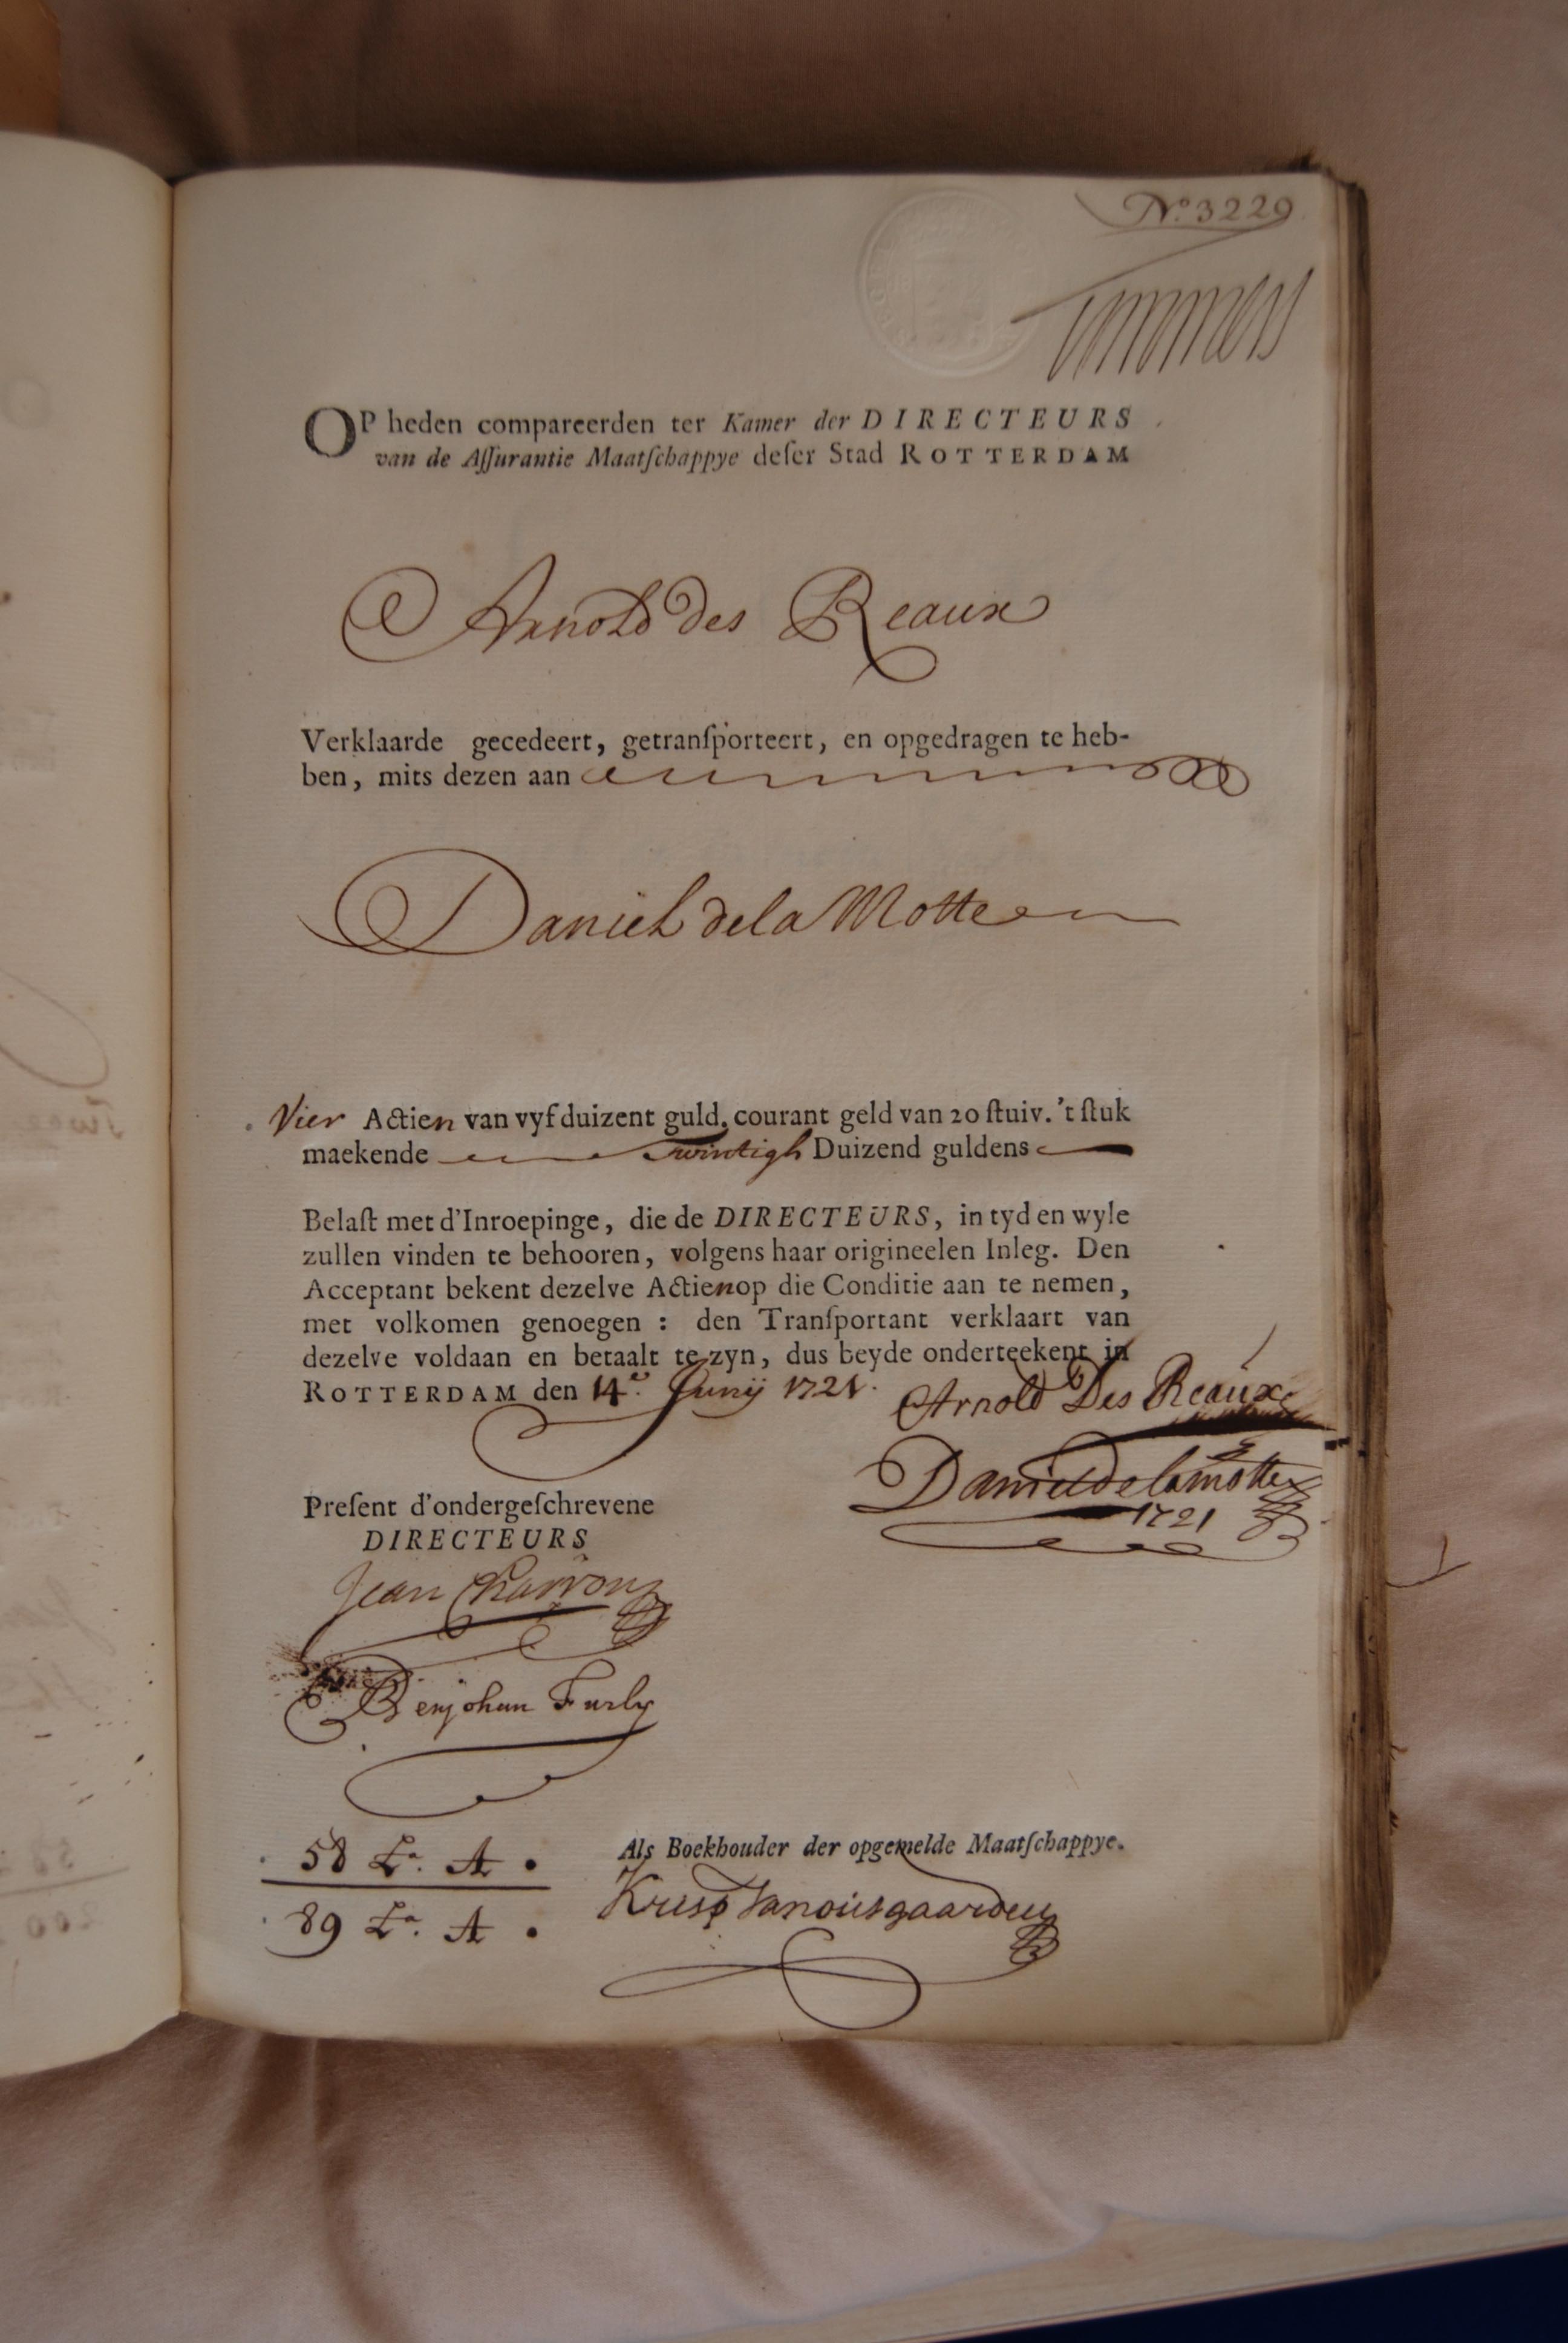 N.º 3229
OP heden compareerden ter Kamer der DIRECTEURS
van de Aſſurantie Maatſchappye deſer Stad ROTTERDAM
Arnold des Reaux
Verklaarde gecedeert, getranſporteert, en opgedragen te heb-
ben, mits dezen aan
Daniel de la Motte
Vier Actien van vyf duizent guld. courant geld van 20 ſtuiv. 't ſtuk
maekende Twintigh Duizend guldens
Belaſt met d'Inroepinge, die de DIRECTEURS, in tyd en wyle
zullen vinden te behooren, volgens haar origineelen Inleg. Den
Acceptant bekent dezelve Actien op die Conditie aan te nemen,
met volkomen genoegen : den Tranſportant verklaart van
dezelve voldaan en betaalt te zyn, dus beyde onderteekent in
ROTTERDAM den 14.e Junij 1721.
Arnold Des Reaux
Daniel de la motte
1721
Preſent d'ondergeſchrevene
DIRECTEURS
Jean
Benjohan Furly
58 La. A.
89 La. A.
Als Boekhouder der opgemelde Maatſchappye.